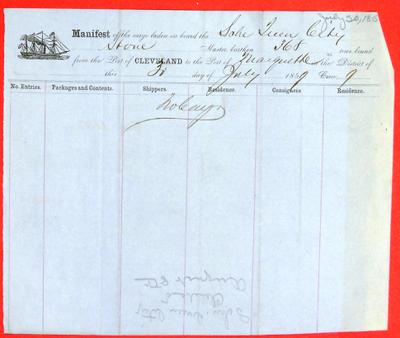 July 30, 185
Manifest of the cargo laden on board the Schr Queen City
Stone Master, burthen 368 tons, bound
from the Port of CLEVELAND to the Port of Marquette in the District of
this day of July 1859 Crew, 9
No. Entries. Packages and Contents. Shippers. Residence. Consignees Residence.
No Cargo
Schr. Queen City
Cleveland
August 8th